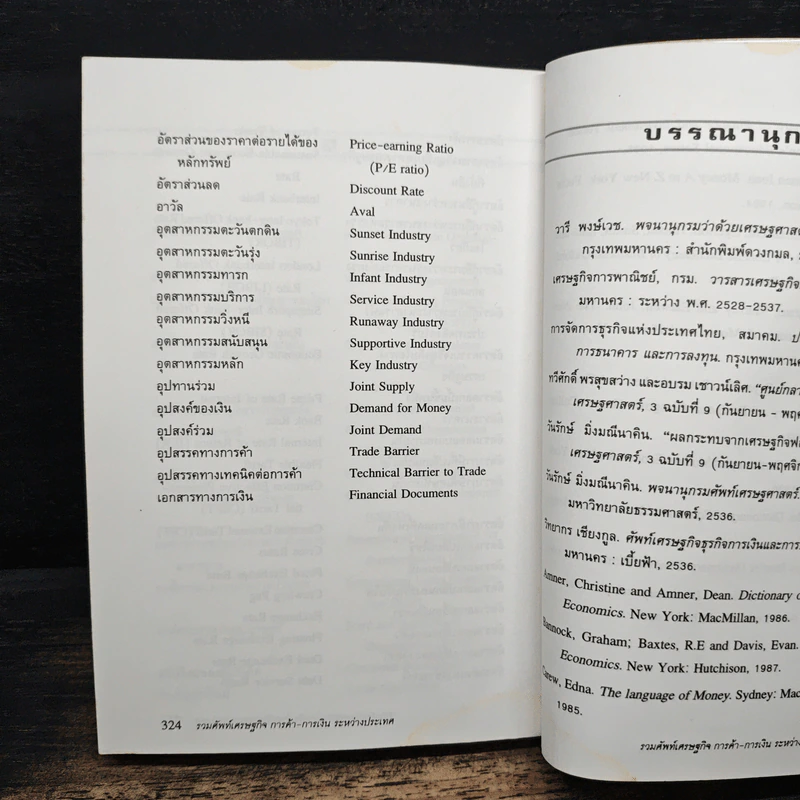 อัตราส่วนของราคาต่อรายได้ของ Price-earning Ratio
หลักทรัพย์ (P/E ratio)
อัตราส่วนลด Discount Rate
อาวัล Aval
อุตสาหกรรมตะวันตกดิน Sunset Industry
อุตสาหกรรมตะวันรุ่ง Sunrise Industry
อุตสาหกรรมทารก Infant Industry
อุตสาหกรรมบริการ Service Industry
อุตสาหกรรมวิ่งหนี Runaway Industry
อุตสาหกรรมสนับสนุน Supportive Industry
อุตสาหกรรมหลัก Key Industry
อุปทานร่วม Joint Supply
อุปสงค์ของเงิน Demand for Money
อุปสงค์ร่วม Joint Demand
อุปสรรคทางการค้า Trade Barrier
อุปสรรคทางเทคนิคต่อการค้า Technical Barrier to Trade
เอกสารทางการเงิน Financial Documents
324 รวมศัพท์เศรษฐกิจ การค้า-การเงิน ระหว่างประเทศ
บรรณานุก
วารี พงษ์เวช. พจนานุกรมว่าด้วยเศรษฐศาสต
กรุงเทพมหานคร : สำนักพิมพ์ดวงกมล,
เศรษฐกิจการพาณิชย์, กรม. วารสารเศรษฐกิจ
มหานคร : ระหว่าง พ.ศ. 2528-2537.
การจัดการธุรกิจแห่งประเทศไทย, สมาคม.
การธนาคาร และการลงทุน. กรุงเทพมหาน
ทวีศักดิ์ พรสุขสว่าง และอบรม เชาวน์เลิศ. "ศูนย์กลา
เศรษฐศาสตร์, 3 ฉบับที่ 9 (กันยายน - พฤศ
วันรักษ์ มิ่งมณีนาคิน. "ผลกระทบจากเศรษฐกิจฟอ
เศรษฐศาสตร์, 3 ฉบับที่ 9 (กันยายน-พฤศจิก
วันรักษ์ มิ่งมณีนาคิน. พจนานุกรมศัพท์เศรษฐศาสตร์.
มหาวิทยาลัยธรรมศาสตร์, 2536.
วิทยากร เชียงกูล. ศัพท์เศรษฐกิจธุรกิจการเงินและการ
มหานคร : เบี้ยฟ้า, 2536.
Amner, Christine and Amner, Dean. Dictionary o
Economics. New York: MacMillan, 1986.
Bannock, Graham; Baxtes, R.E and Davis, Evan.
Economics. New York: Hutchison, 1987.
Carew, Edna. The language of Money. Sydney: Mac
1985.
รวมศัพท์เศรษฐกิจ การค้า-การเงิน ระหว่าง